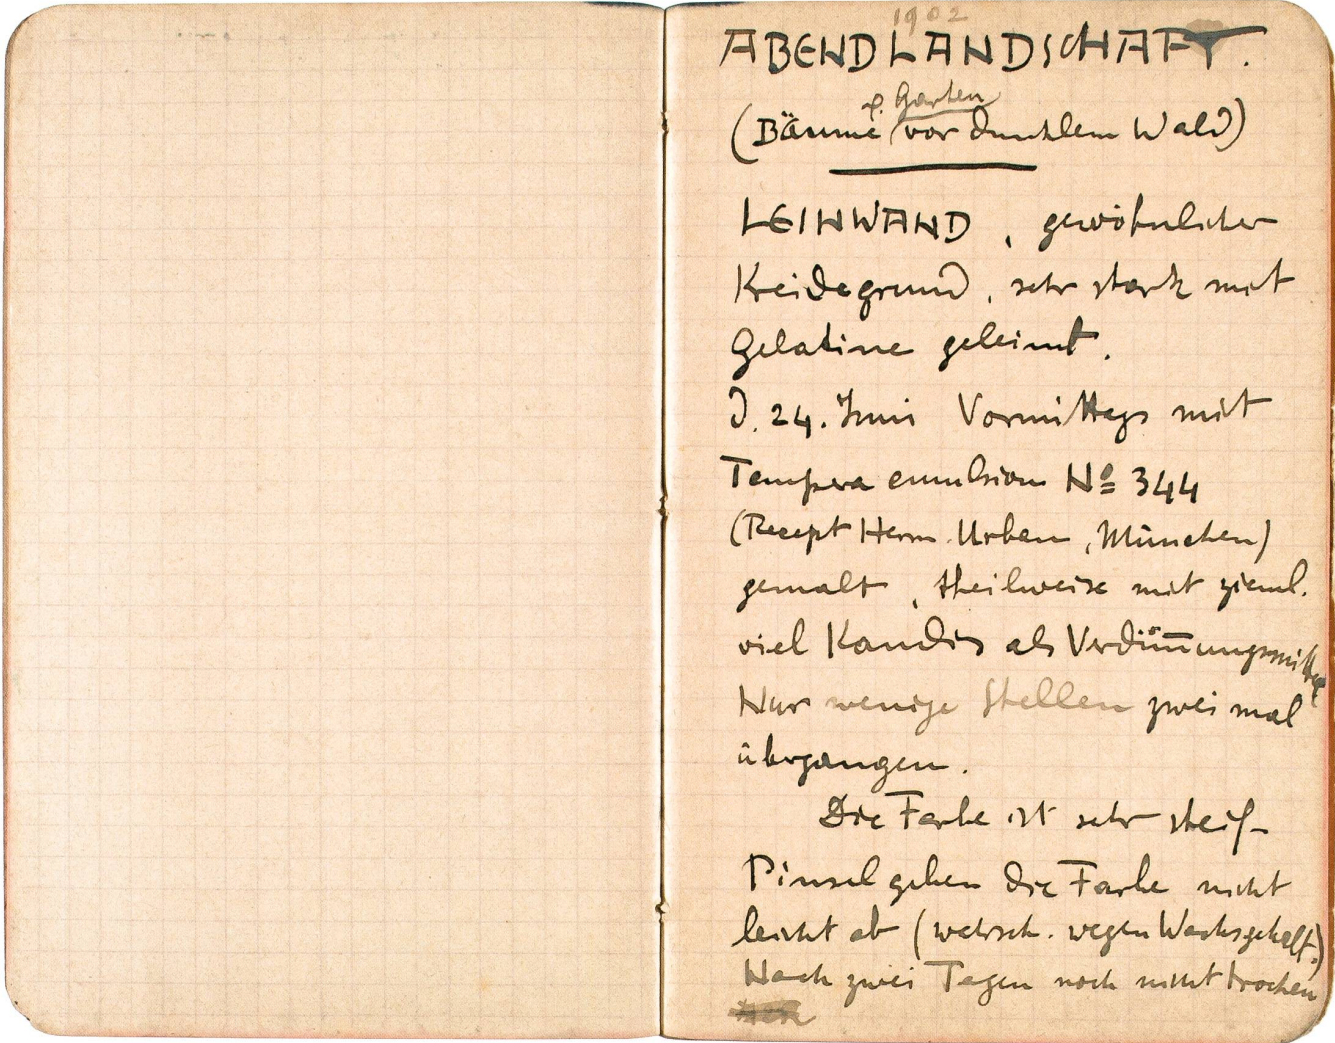 1902
ABENDLANDSCHAFT.
p. Garten
(Bäume vor dunklem Wald)
LEINWAND, gewöhnlicher
Kreidegrund, sehr stark mit
Gelatine geleimt.
D. 24. Juni Vormittags mit
Temperaemulsion No 344
(Recept Herm. Urban, München)
gemalt, theilweise mit zieml.
viel Kandis als Verdünnungsmittel
Nur wenige Stellen zweimal
übergangen.
Die Farbe ist sehr steif-
Pinsel geben die Farbe nicht
leicht ab (wahrsch. wegen Wachsgehalt.)
Nach zwei Tagen noch nicht trocken